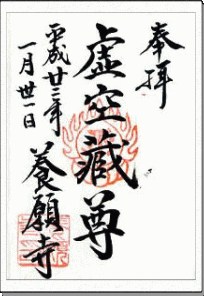 奉拝
虚空蔵尊
平成廿三年
一月廿一日
養願寺